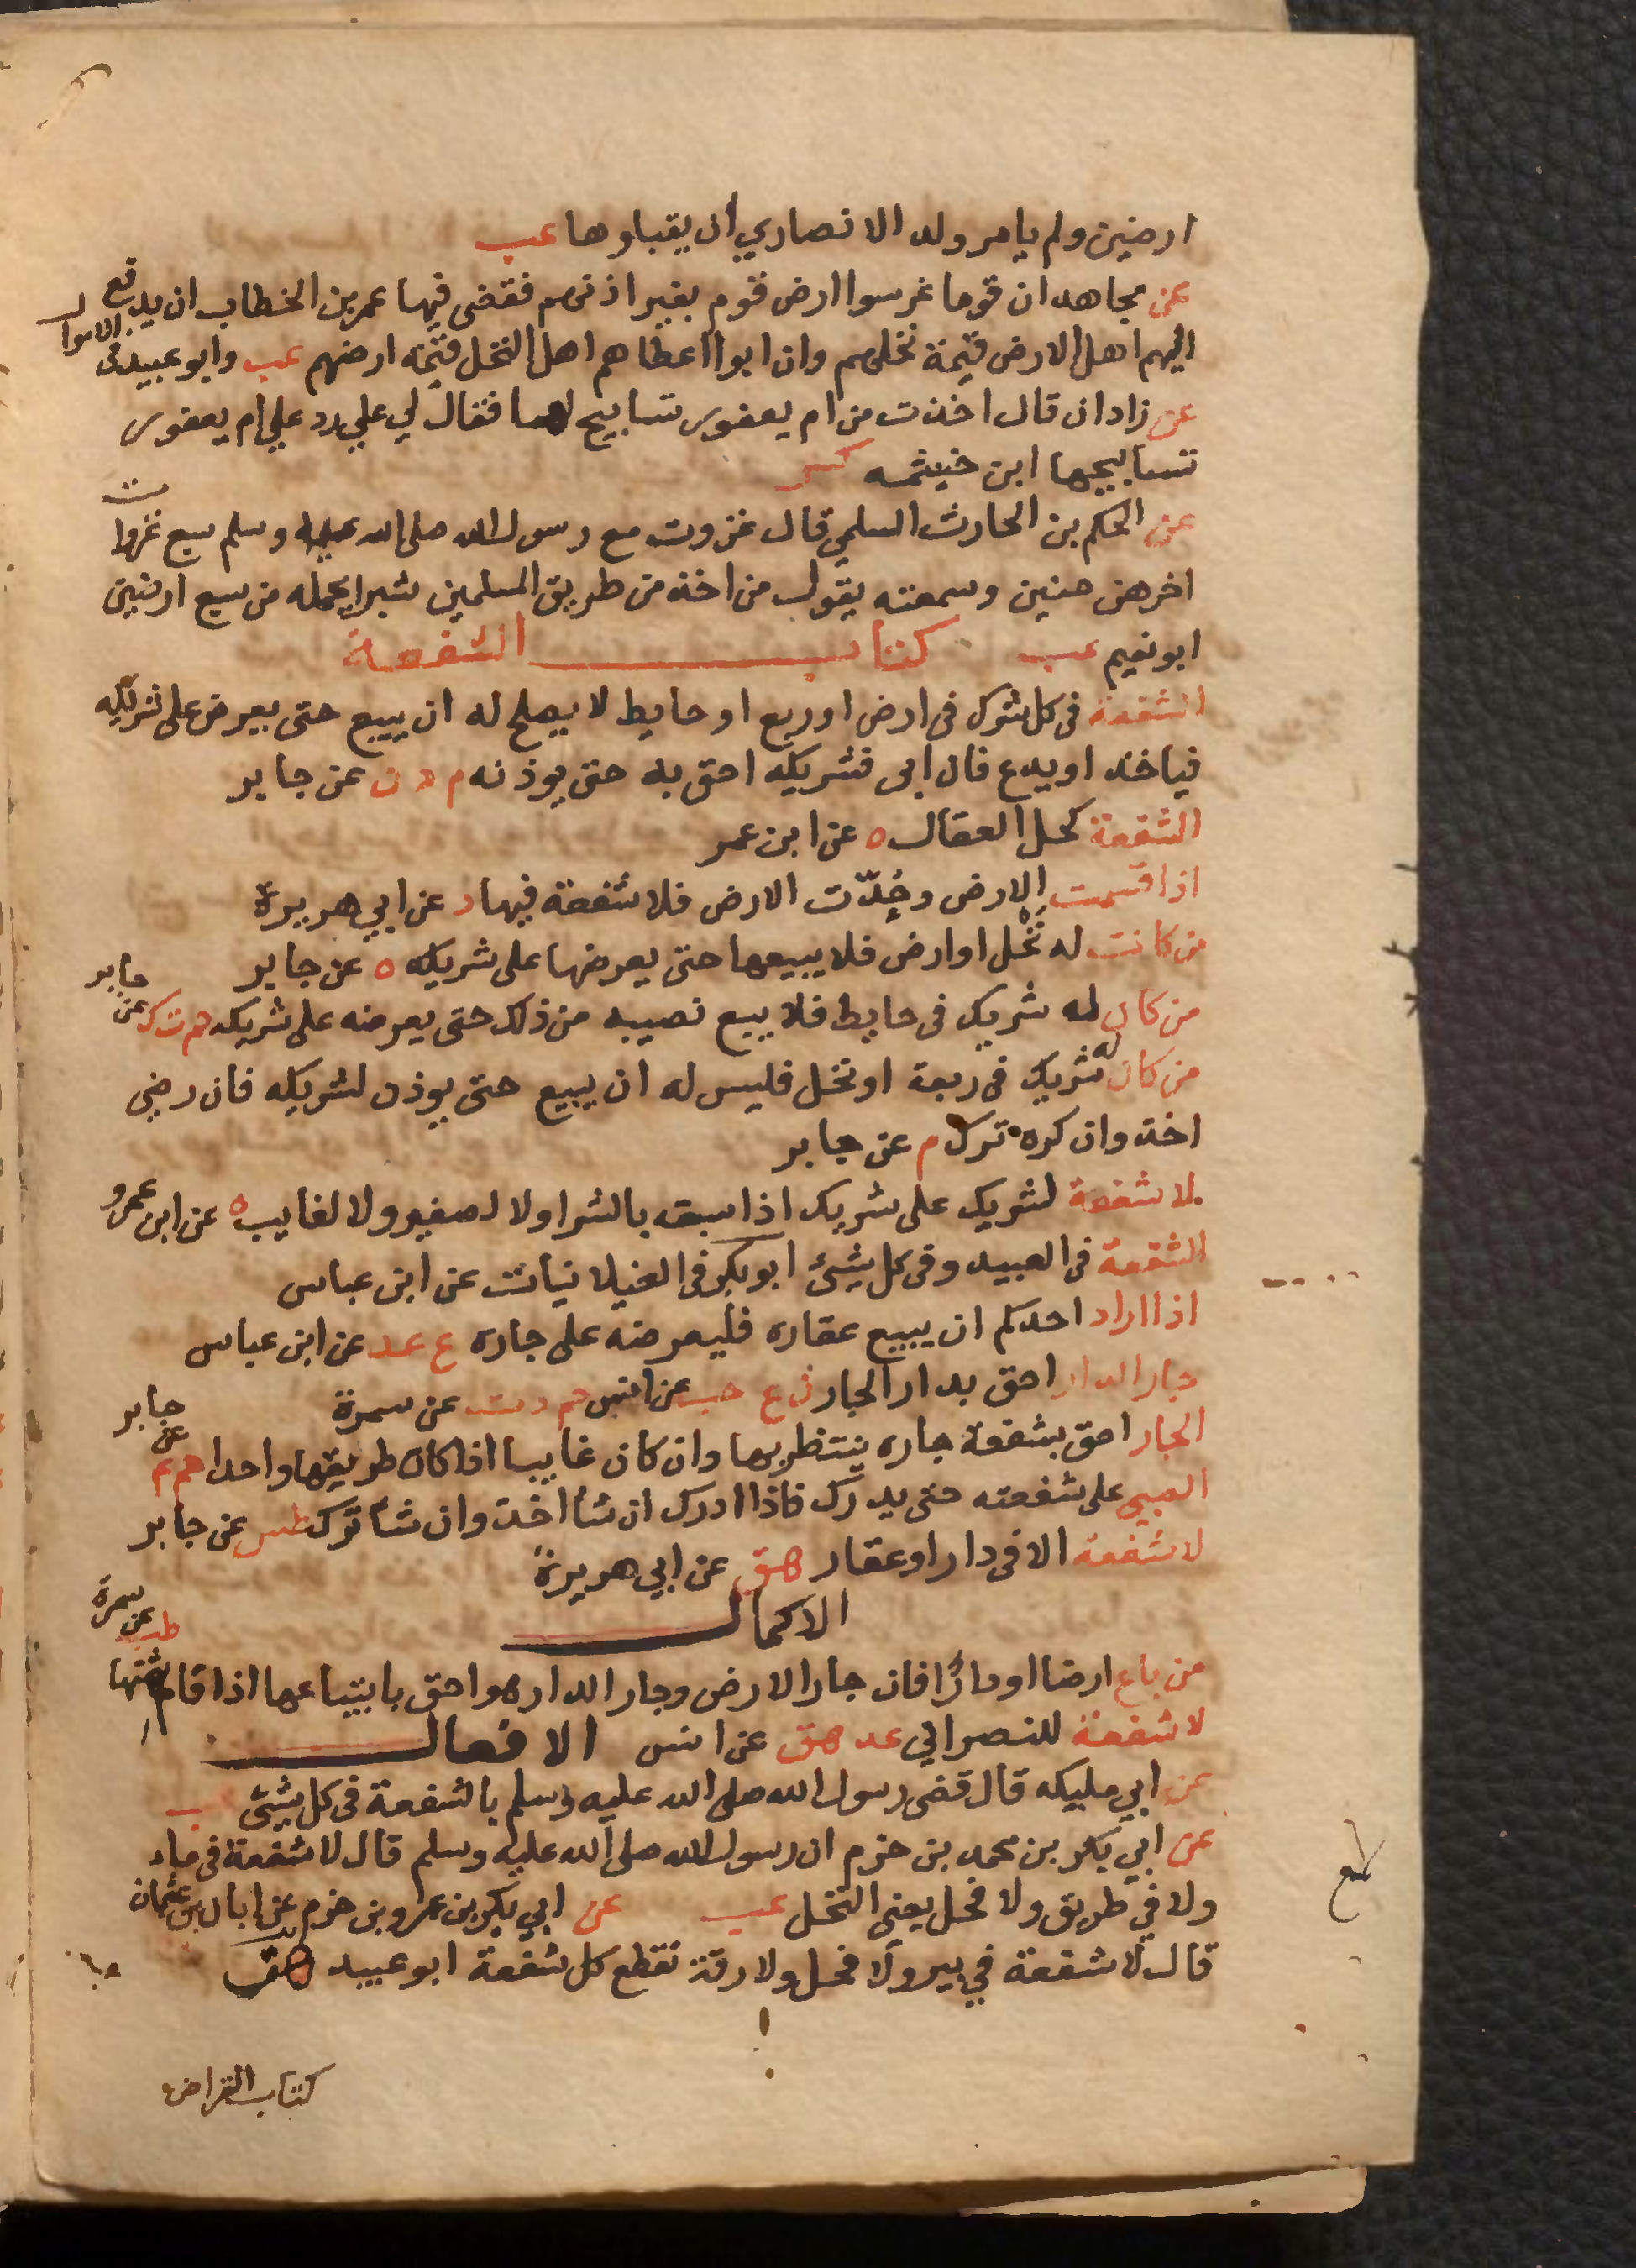 ارضين ولم يامر ولد الانصاري ان يقبلوها عب
عن مجاهد ان قوما غرسوا ارض قوم بغير اذنهم فقضى فيها عمر بن الخطاب ان يدفع
اليهم اهل الارض قيمة نخلهم وان ابوا اعطاهم اهل النخل قيمة ارضهم عب وابو عبيد في الاموال
عن زادان قال اخذت من ام يعفور تسابيح لها فقال لي علي رد علي ام يعفور
تسابيحها ابن خيثمه كر
عن الحكم بن الحارث السلمي قال غزوت مع رسول الله صلى الله عليه وسلم سبع غزوات
اخرهن حنين وسمعته يقول من اخذ من طريق المسلمين شبرا يحمله من سبع ارضين
ابو نعيم عب كتاب الشفعة
الشفعة في كل شرك في ارض او ربع او حايط لا يصلح له ان يبيع حتى يعرض على شريكه
فياخذ او يدع فان ابى فشريكه احق به حتى يوذنه م د ن عن جابر
الشفعة كحل العقال ه عن ابن عمر
اذا قسمت الارض وحُدّت الارض فلا شفعة فيها د عن ابي هريرة
من كانت له نخل او ارض فلا يبيعها حتى يعرضها على شريكه ه عن جابر
من كان له شريك في حايط فلا يبيع نصيبه من ذلك حتى يعرضه على شريكه حم ت ك عن جابر
من كان له شريك في ربعة او نخل فليس له ان يبيع حتى يوذن لشريكه فان رضي
اخذ وان كره ترك م عن جابر
لا شفعة لشريك على شريك اذا سبقه بالشرا ولا لصغير ولا لغايب ه عن ابن عمرو
الشفعة في العبيد وفي كل شيئ ابو بكر في الغيلانيات عن ابن عباس
اذا اراد احدكم ان يبيع عقاره فليعرضه على جاره ع عد عن ابن عباس
جار الدار احق بدار الجار ن ع حب عن انس حم د ت عن سمرة
الجار احق بشفعة جاره ينتظر بها وان كان غايبا اذا كان طريقهما واحدا حم م عن جابر
الصبي على شفعته حتى يدرك فاذا ادرك ان شا اخذ وان شا ترك طس عن جابر
لا شفعة الا في دار او عقار هق عن ابي هريرة
الاكمال
من باع ارضا او دارًا فان جار الارض وجار الدار هو احق بابتياعها اذا قام بثمنها طب عن سمرة
لا شفعة للنصراني عد هق عن انس الافعال
عن ابي مليكه قال قضى رسول الله صلى الله عليه وسلم بالشفعة في كل شيئ عب
عن ابي بكر بن محمد بن حزم ان رسول الله صلى الله عليه وسلم قال لا شفعة في ماء
ولا في طريق ولا فحل يعني النخل عب عن ابي بكر بن عمرو بن حزم عن ابان بن عثمان
قال لا شفعة في بير ولا فحل ولا رقة تقطع كل شفعة ابو عبيد هق
كتاب القراض